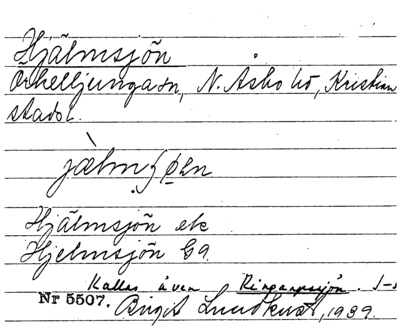 Hjälmsjön
Örkelljunga sn, N. Åsbo hd, Kristian
stads l.
Hjälmsjön ek
Hjelmsjön G9.
Kallas även
Nr 5507. Birgit Lundkvist, 1939.